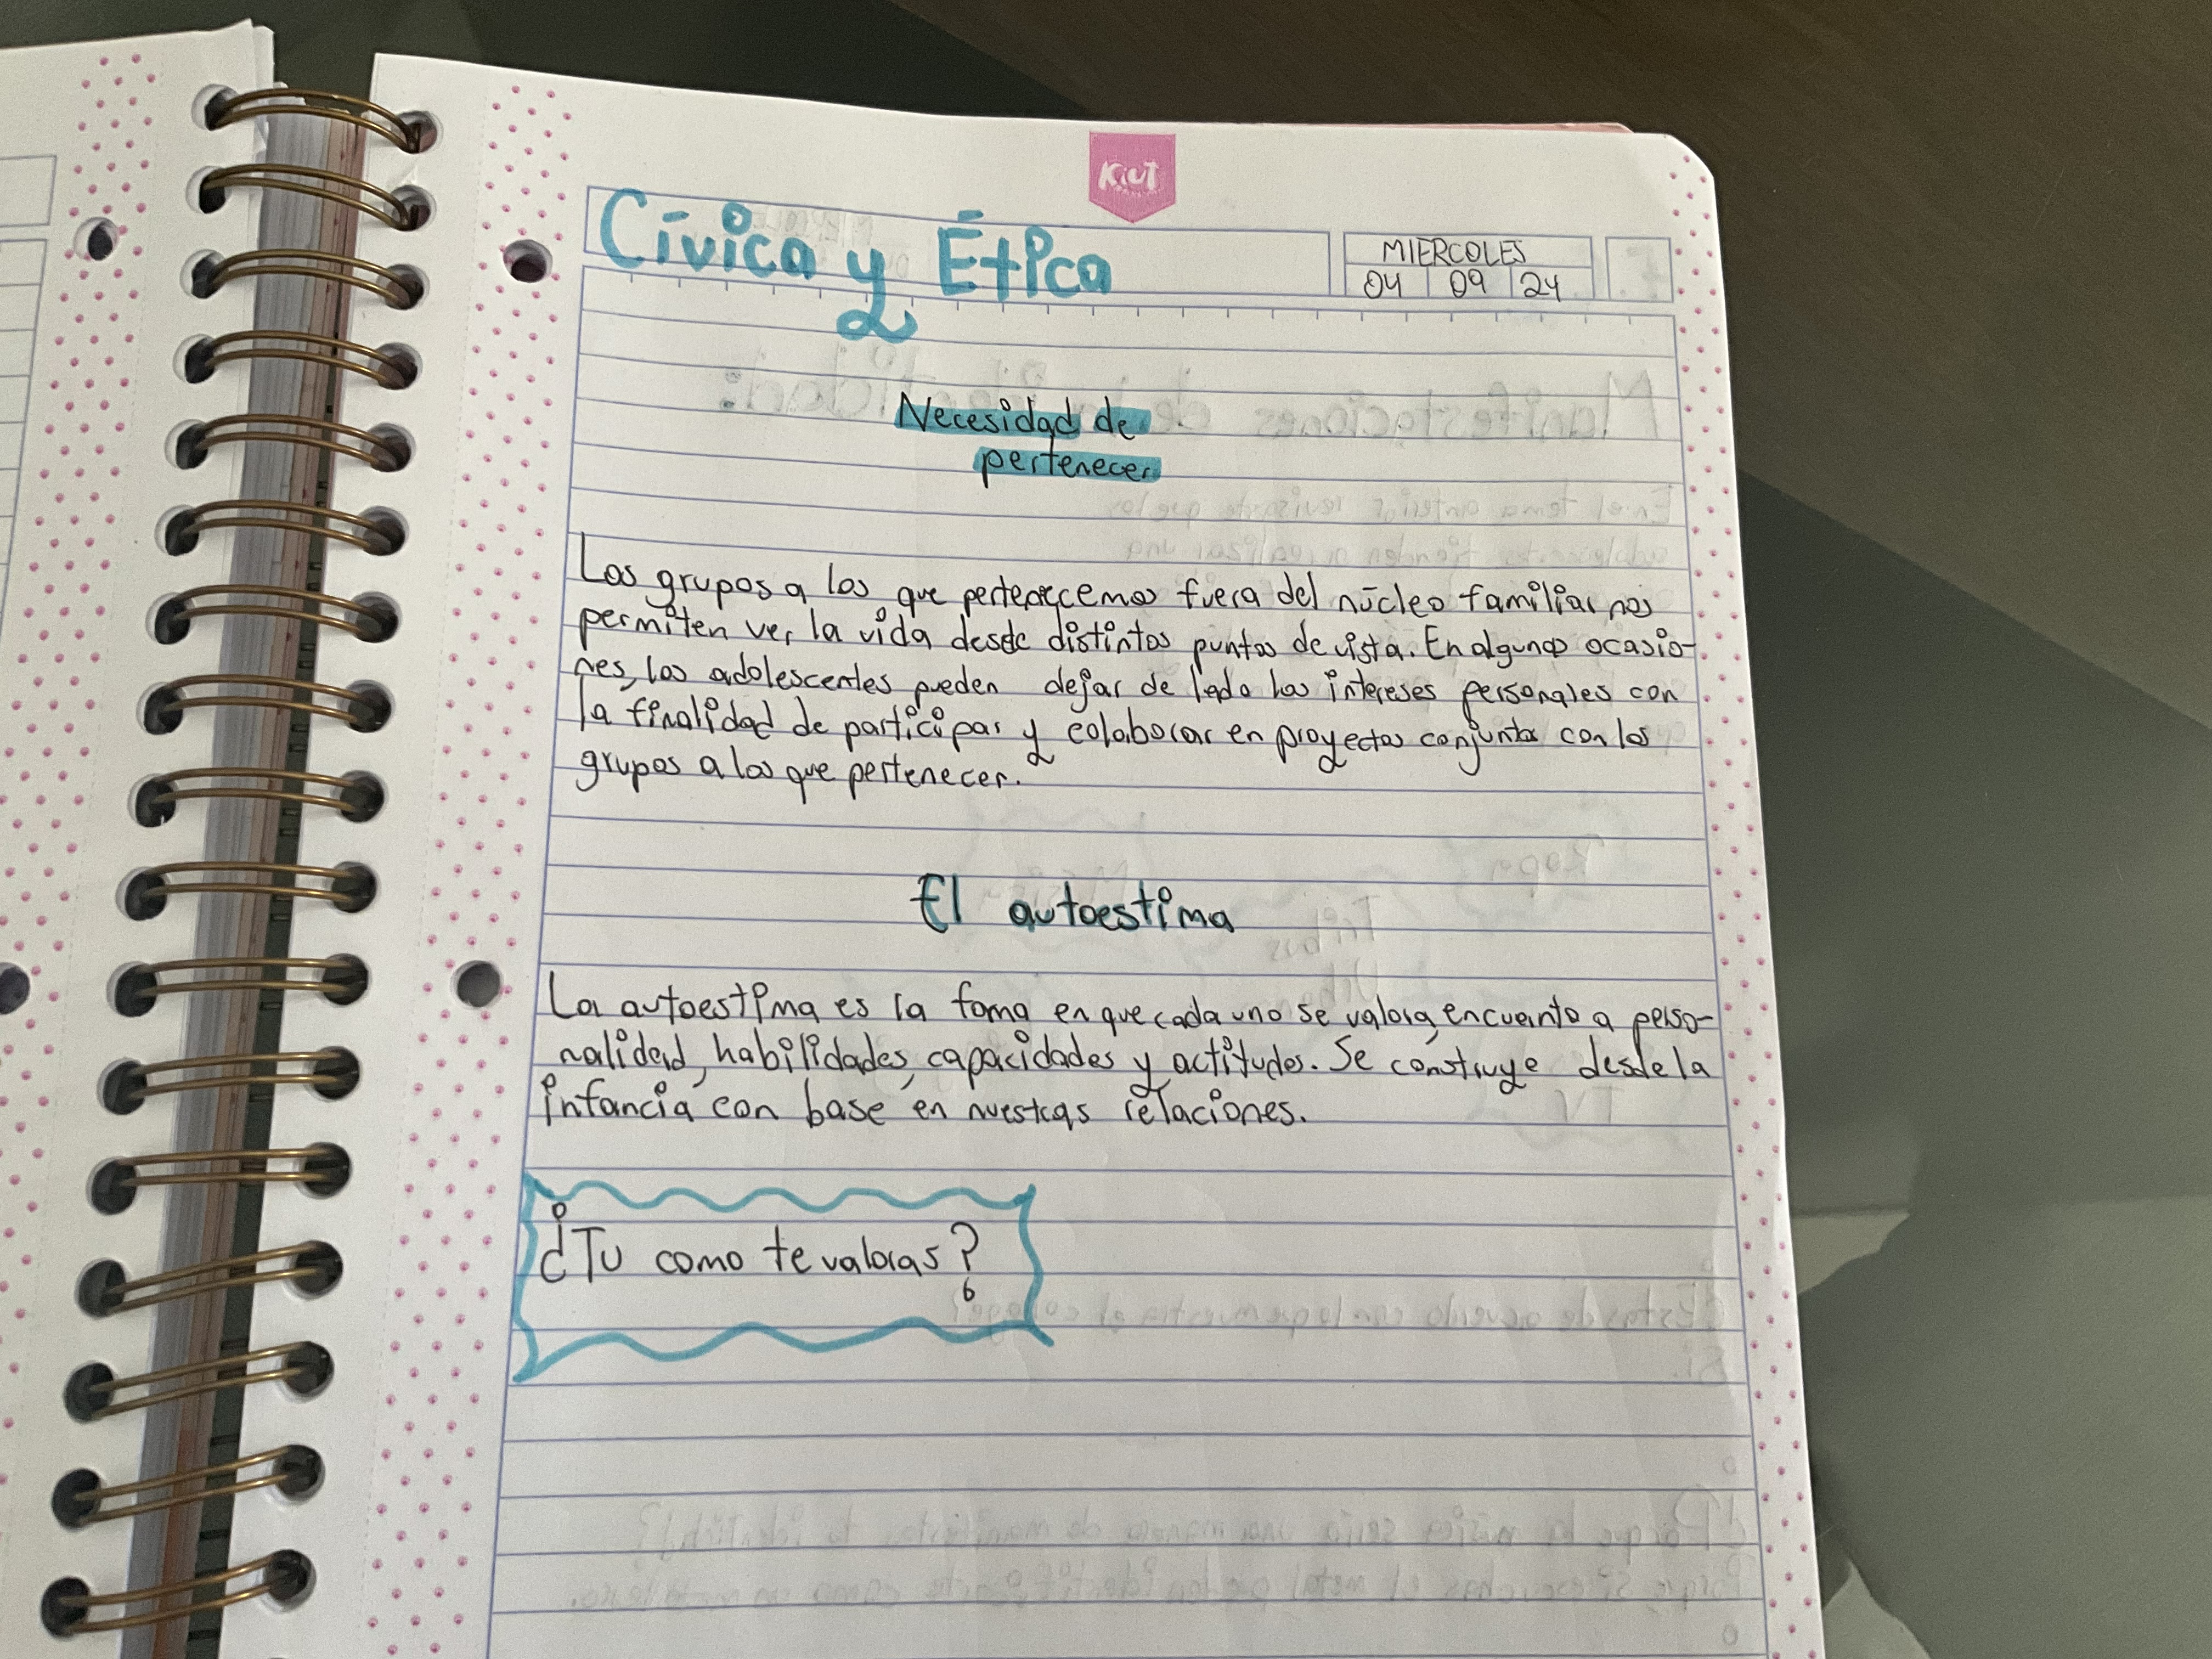 KiUT
Cívica y Ética
MIERCOLES
04 09 24
Necesidad de
pertenecer
Los grupos a los que pertenecemos fuera del núcleo familiar nos
permiten ver la vida desde distintos puntos de vista. En algunas ocasio-
nes, los adolescentes pueden dejar de lado los intereses personales con
la finalidad de participar y colaborar en proyectos conjuntos con los
grupos a los que pertenecer.
El autoestima
La autoestima es la foma en que cada uno se valora, encuanto a perso-
nalidad, habilidades, capacidades y actitudes. Se construye desde la
infancia con base en nuestras relaciones.
¿Tu como te valoras?